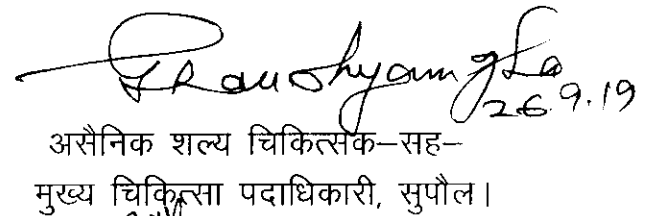 26.9.19
असैनिक शल्य चिकित्सक–सह–
मुख्य चिकित्सा पदाधिकारी, सुपौल।